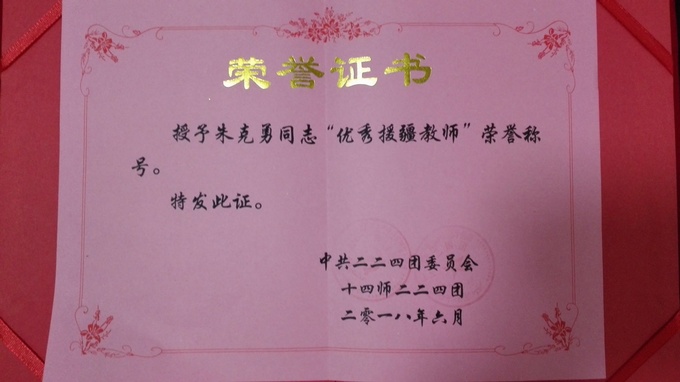 荣誉证书
授予朱克勇同志“优秀援疆教师”荣誉称
号。
特发此证。
中共二二四团委员会
十四师二二四团
二零一八年六月